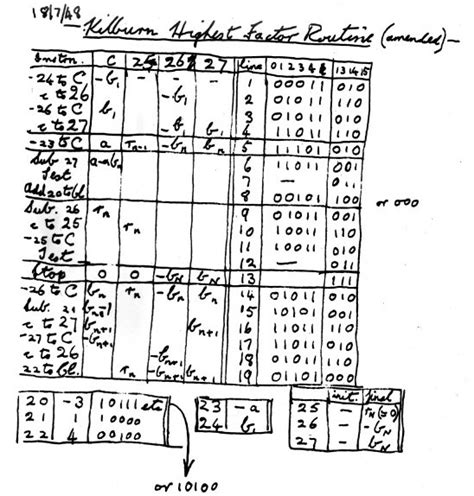 18/7/48
Kilburn Highest Factor Routine (amended)-
Instrn. C 25 26 27 line 0 1 2 3 4 5 13 14 15
-24 to C -b₁ - - - 1 00011 010
c to 26 -b₁ 2 01011 110
-26 to C b₁ 3 01011 010
c to 27 -b₁ b₁ 4 11011 110
-23 to C a rₙ₋₁ -bₙ bₙ 5 11101 010
Sub. 27 a-bₙ 6 11011 001
Test 7 — 011
Add 20 to bl. 8 00101 100 or 000
Sub. 26 rₙ 9 01011 001
c to 25 rₙ 10 10011 110
-25 to C 11 10011 010
Test 12 — 011
Stop 0 0 -b_N b_N 13 111
-26 to C bₙ rₙ -bₙ bₙ 14 01011 010
Sub. 21 bₙ₊₁ 15 10101 001
c to 27 bₙ₊₁ bₙ₊₁ 16 11011 110
-27 to C -bₙ₊₁ 17 11011 010
c to 26 -bₙ₊₁ 18 01011 110
22 to bl. rₙ -bₙ₊₁ bₙ₊₁ 19 01101 000
20 -3 10111 etc
21 1 10000
22 4 00100
23 -a
24 b₁
init. final
25 - rₙ (=0)
26 - -b_N
27 - b_N
or 10100